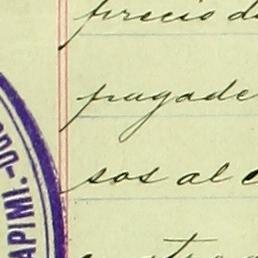 precio d
pagade
sos al c
APIMI.-DGO